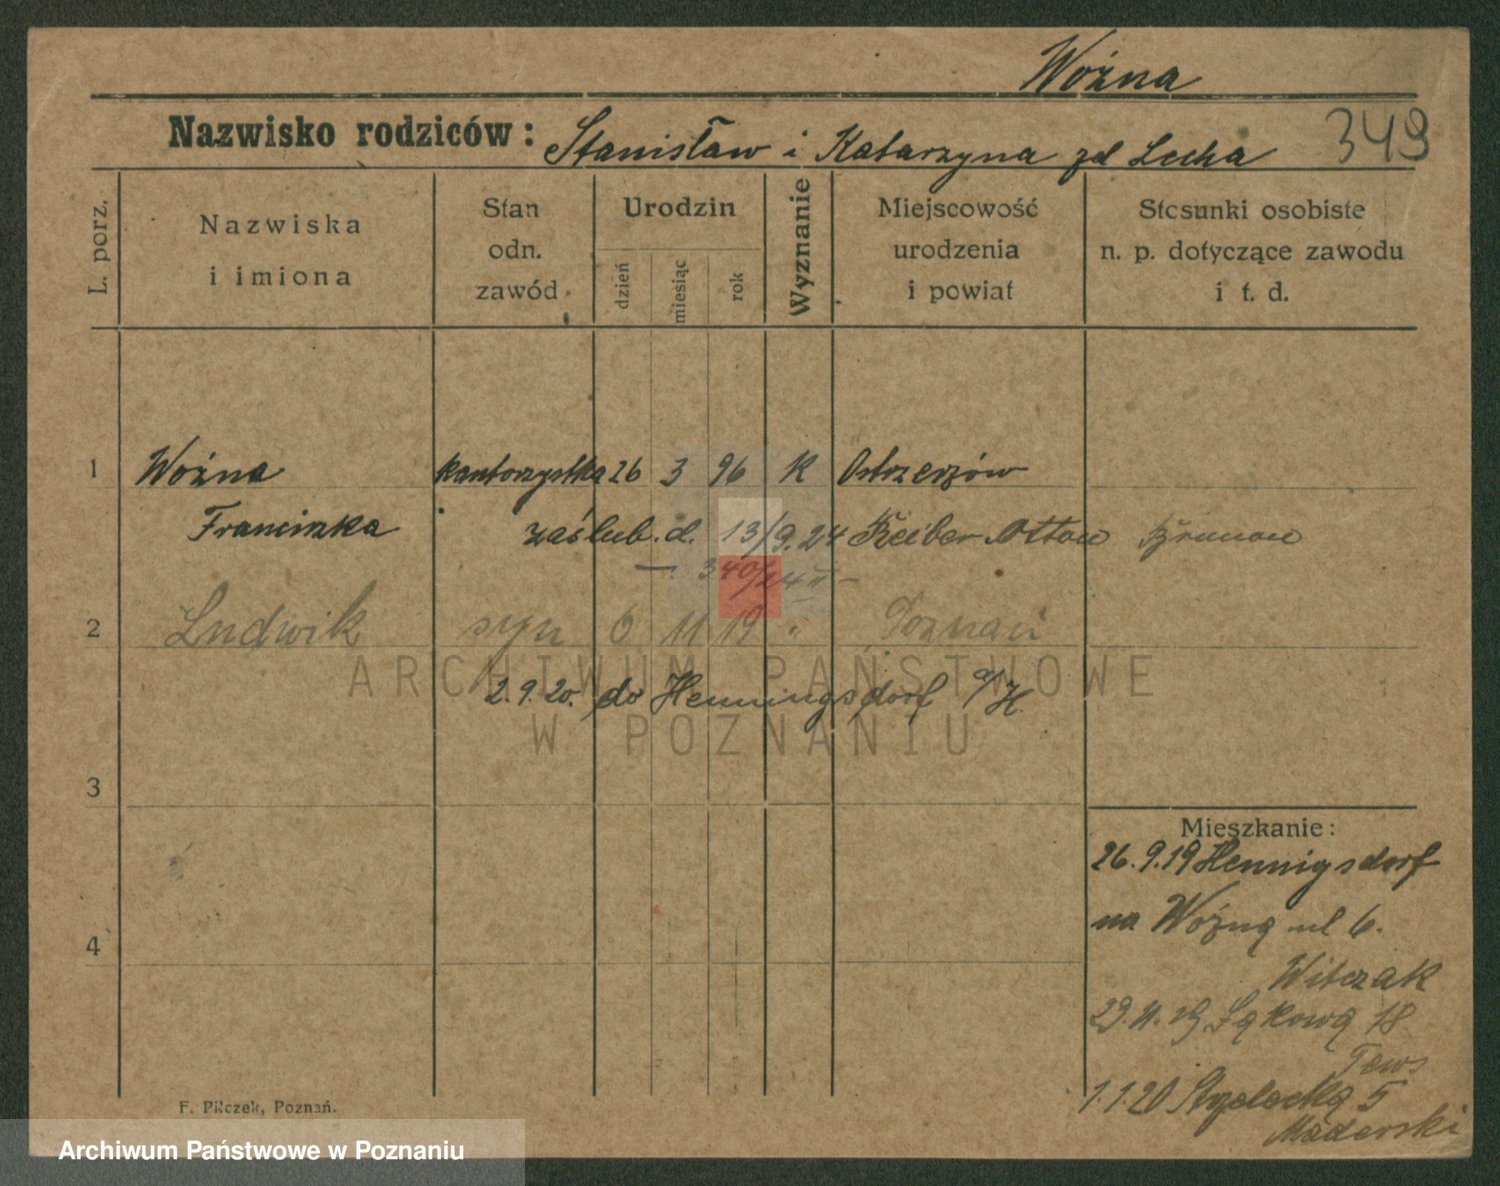 Woźna
Nazwisko rodziców: Stanisław i Katarzyna zd Lecha 349
L. porz.
Nazwiska
i imiona
Stan
odn.
zawód
Urodzin
dzień
miesiąc
rok
Wyznanie
Miejscowość
urodzenia
i powiat
Stosunki osobiste
n. p. dotyczące zawodu
i t. d.
1 Woźna kantorzystka 26 3 96 K Ostrzeszów
Franciszka zaślub. d. 13/9.24 Reiber Otton
340/24 II
2 Ludwik syn 6 11 19 " Poznań
2.9.20. do Henningsdorf a/H.
3
4
Mieszkanie:
26.9.19 Hennigsdorf
na Woźną ul 6.
Witczak
29.11.19 Łąkową 18
Tews
1.1.20 Strzelecką 5
Maderski
F. Pilczek, Poznań.
ARCHIWUM PAŃSTWOWE
W POZNANIU
Archiwum Państwowe w Poznaniu